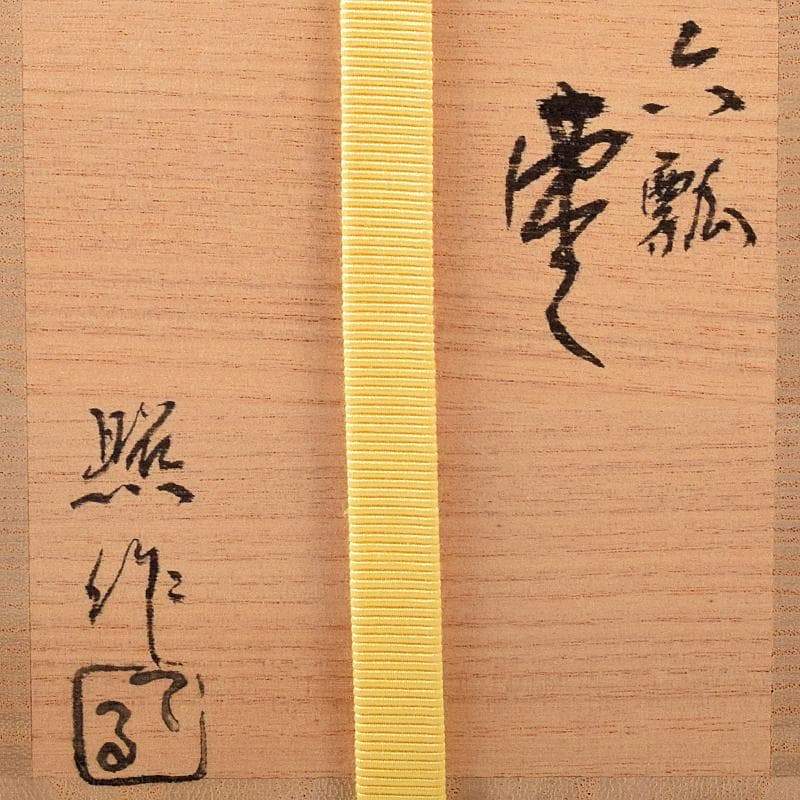 六瓢
棗
照作
てる